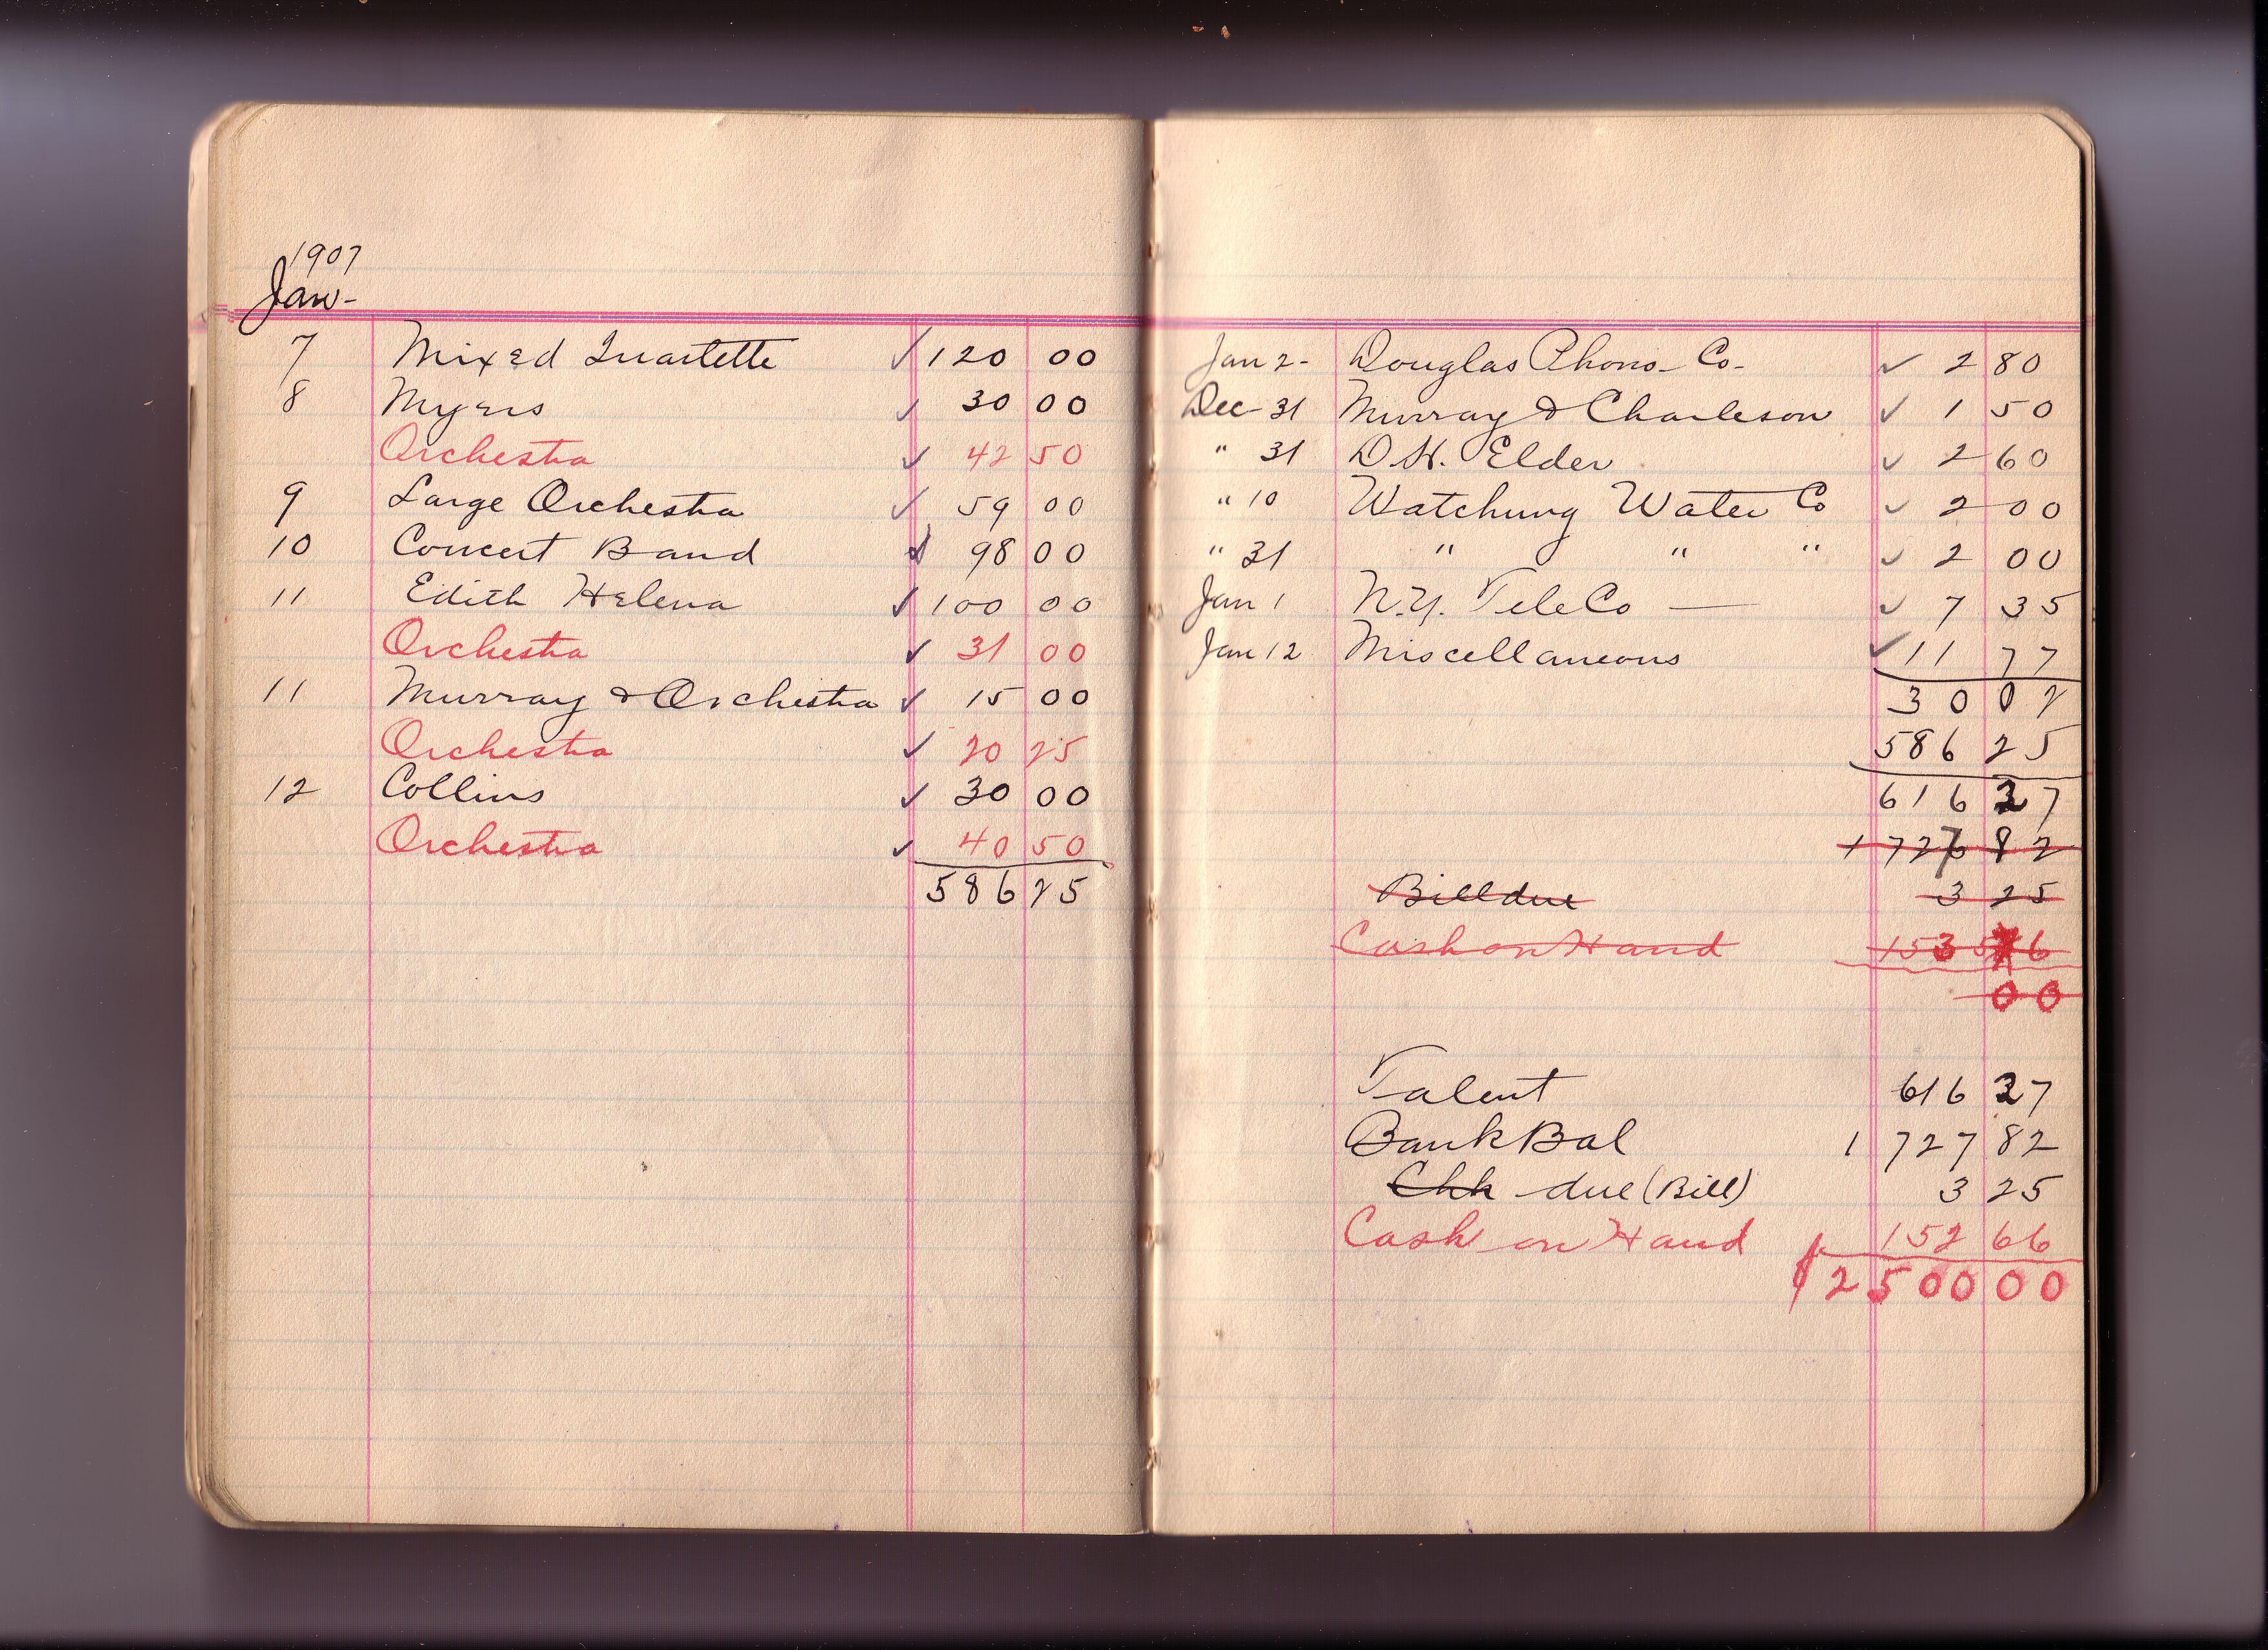 1907
Jan-
7 Mixed Quartette ✓ 120 00
8 Myers ✓ 30 00
Orchestra ✓ 42 50
9 Large Orchestra ✓ 59 00
10 Concert Band ✓ 98 00
11 Edith Helena ✓ 100 00
Orchestra ✓ 31 00
11 Murray & Orchestra ✓ 15 00
Orchestra ✓ 20 25
12 Collins ✓ 30 00
Orchestra ✓ 40 50
586 25
Jan 2- Douglas Phono- Co- ✓ 2 80
Dec- 31 Murray & Charleson ✓ 1 50
" 31 D.H. Elder ✓ 2 60
" 10 Watchung Water Co ✓ 2 00
" 31 " " " ✓ 2 00
Jan 1 N.Y. Tele Co — ✓ 7 35
Jan 12 Miscellaneous ✓ 11 77
30 02
586 25
616 27
1 727 82
Bill due 3 25
Cash on Hand 153
00
Talent 616 27
Bank Bal 1 727 82
Chk due (Bill) 3 25
Cash on Hand 152 66
$2500 00